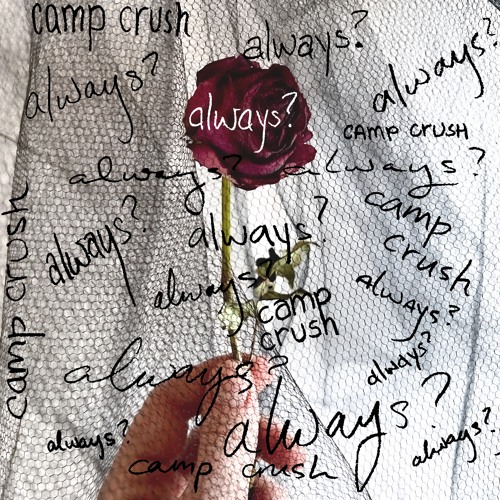 camp crush
always?
always?
always?
always?
camp crush
always?
always?
camp
crush
always?
always?
camp crush
always?
always?
camp
crush
always?
always?
always?
always?
always?
camp crush